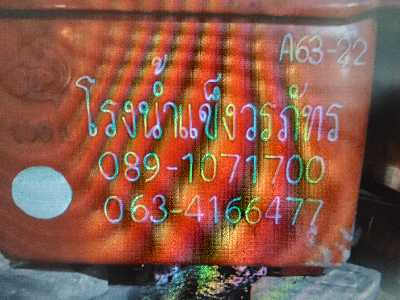 A63-22
โรงน้ำแข็งวรภัทร
089-1071700
063-4166477